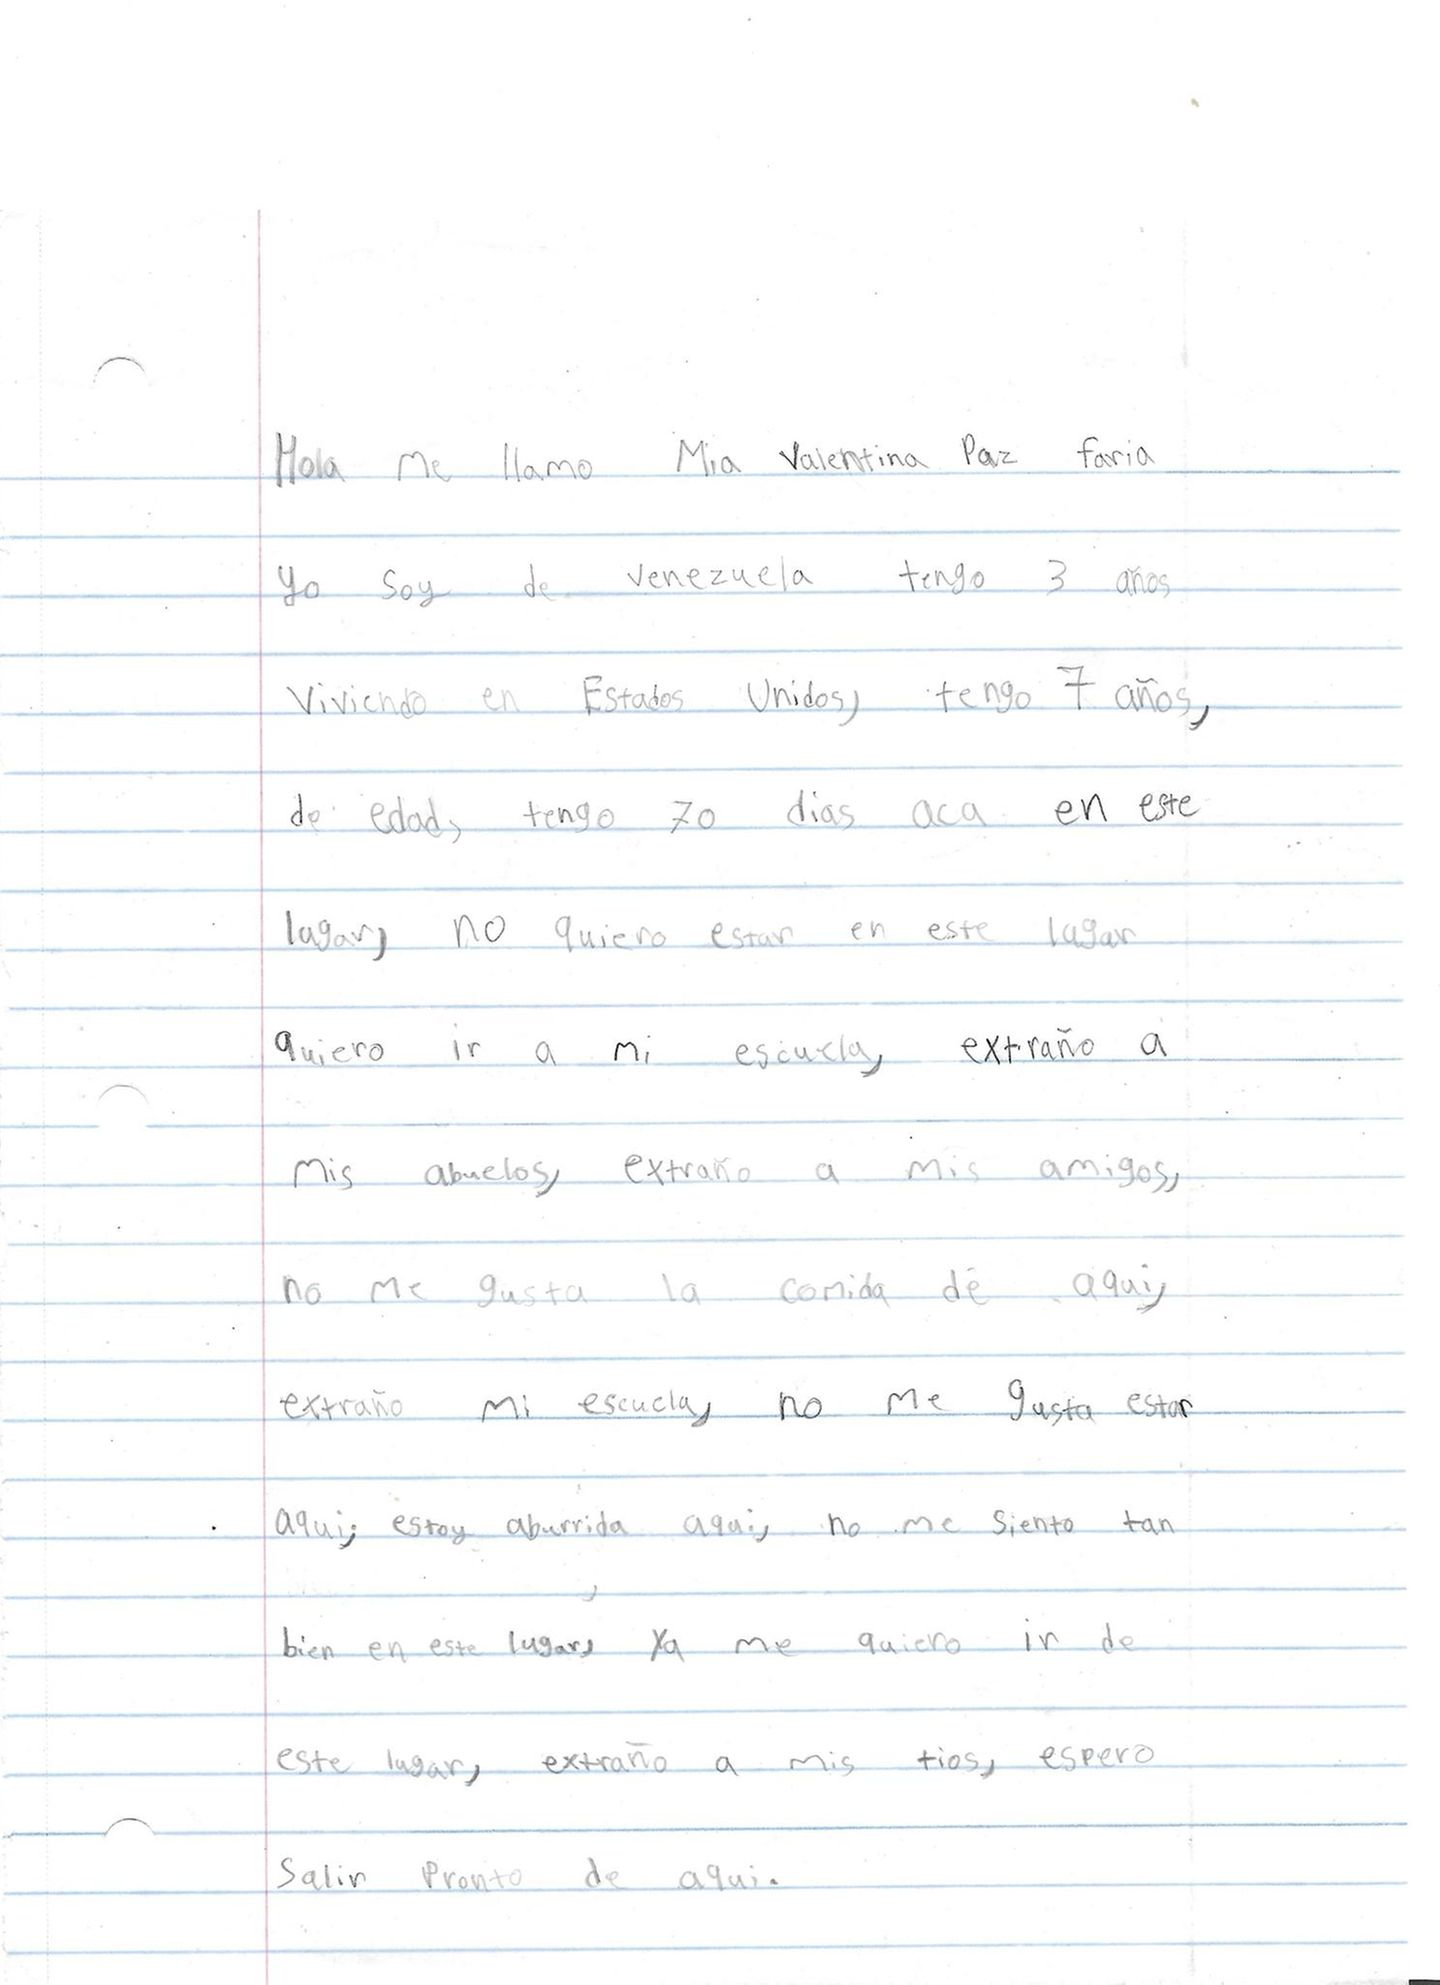 Hola me llamo Mia Valentina Paz faria
Yo soy de venezuela tengo 3 años
Viviendo en Estados Unidos, tengo 7 años,
de edad, tengo 70 dias aca en este
lugar, no quiero estar en este lugar
quiero ir a mi escuela, extraño a
mis abuelos, extraño a mis amigos,
no me gusta la comida de aqui,
extraño mi escuela, no me gusta estar
aqui, estoy aburrida aqui, no me siento tan
bien en este lugar, Ya me quiero ir de
este lugar, extraño a mis tios, espero
Salir Pronto de aqui.